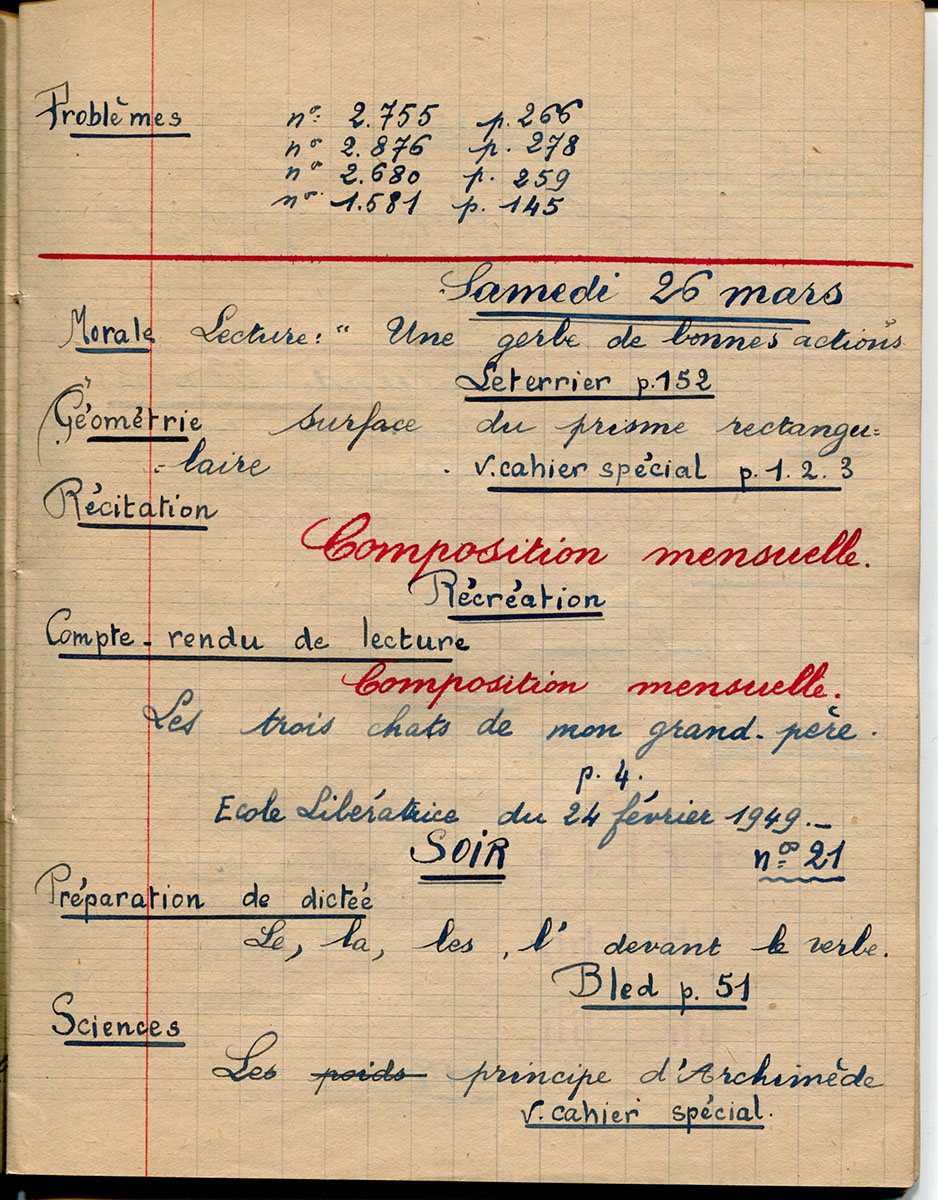 Problèmes n° 2.755 p. 266
n° 2.876 p. 278
n° 2.680 p. 259
n° 1.581 p. 145
Samedi 26 mars
Morale Lecture: " Une gerbe de bonnes actions "
Leterrier p. 152
Géométrie surface du prisme rectangu=
=laire v. cahier spécial p. 1. 2. 3
Récitation
Composition mensuelle.
Récréation
Compte-rendu de lecture
Composition mensuelle.
Les trois chats de mon grand-père.
p. 4.
Ecole Libératrice du 24 février 1949._
SOIR n° 21
Préparation de dictée
Le, la, les, l' devant le verbe.
Bled p. 51
Sciences
Les poids principe d'Archimède
v. cahier spécial.